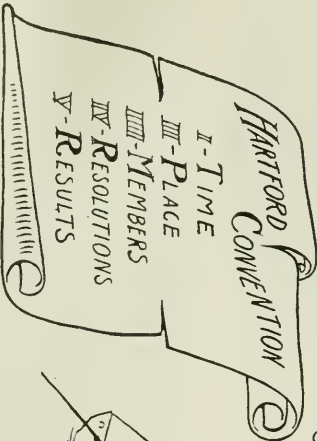 HARTFORD
CONVENTION
I-TIME
II-PLACE
III-MEMBERS
IV-RESOLUTIONS
V-RESULTS